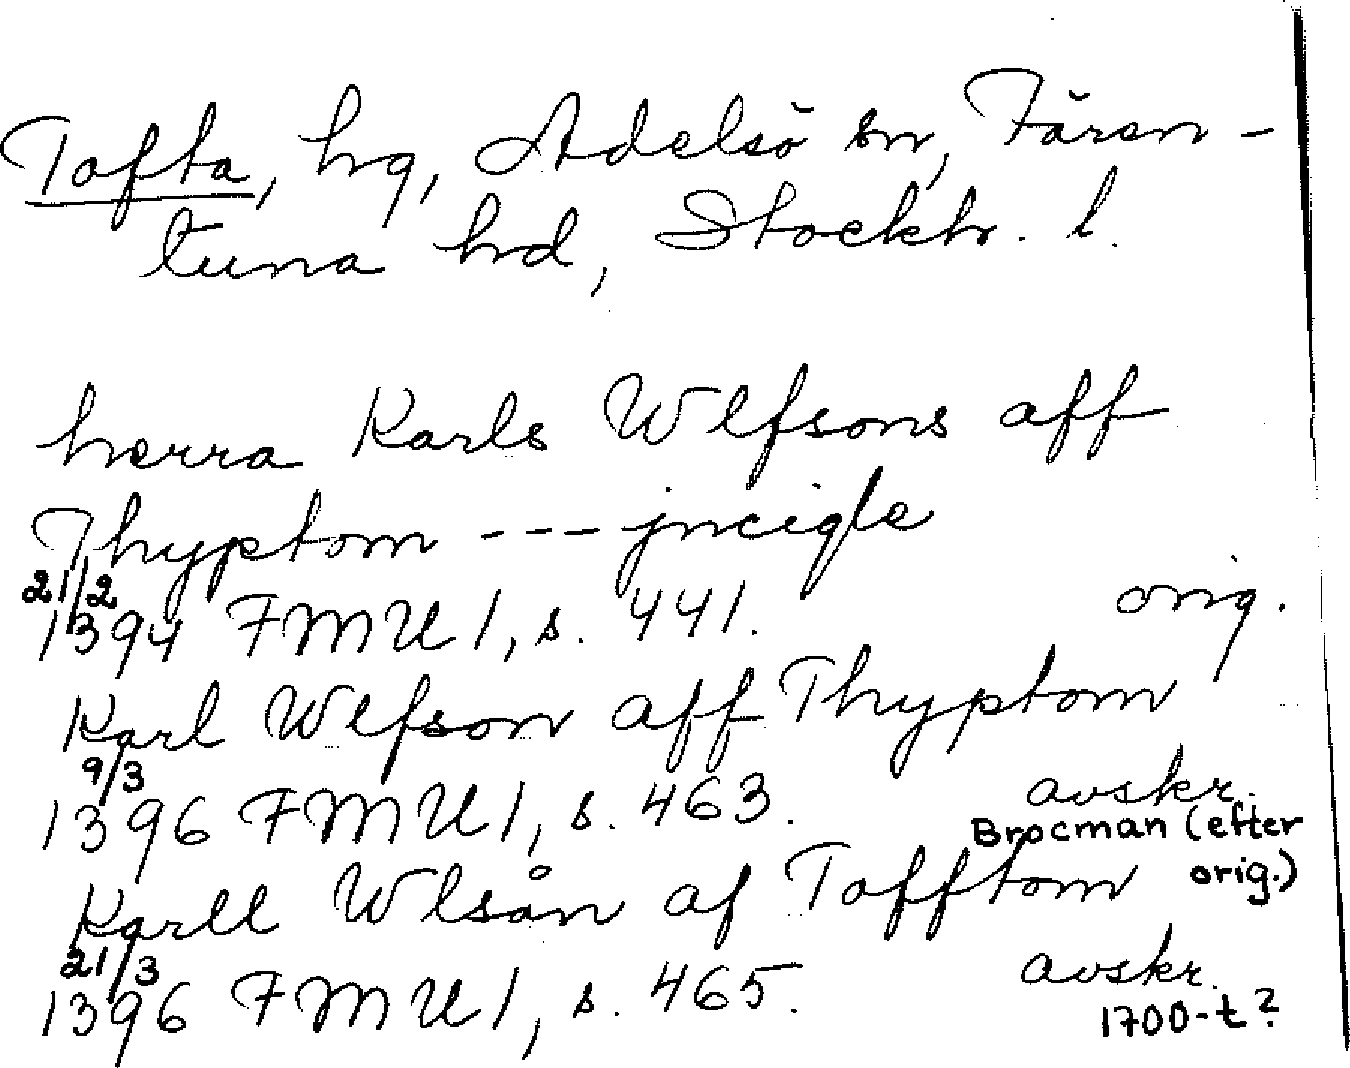 Tofta, hg, Adelsö sn, Fären-
tuna hd, Stockh. l.
herra Karls Wlfsons aff
Thyptom --- jncigle
21/2
1394 FMU 1, s. 441. orig.
Karl Wlfson aff Thyptom
9/3
1396 FMU 1, s. 463. avskr.
Brocman (efter
orig.)
Karll Wlsån af Tofftom
21/3
1396 FMU 1, s. 465. avskr.
1700-t?